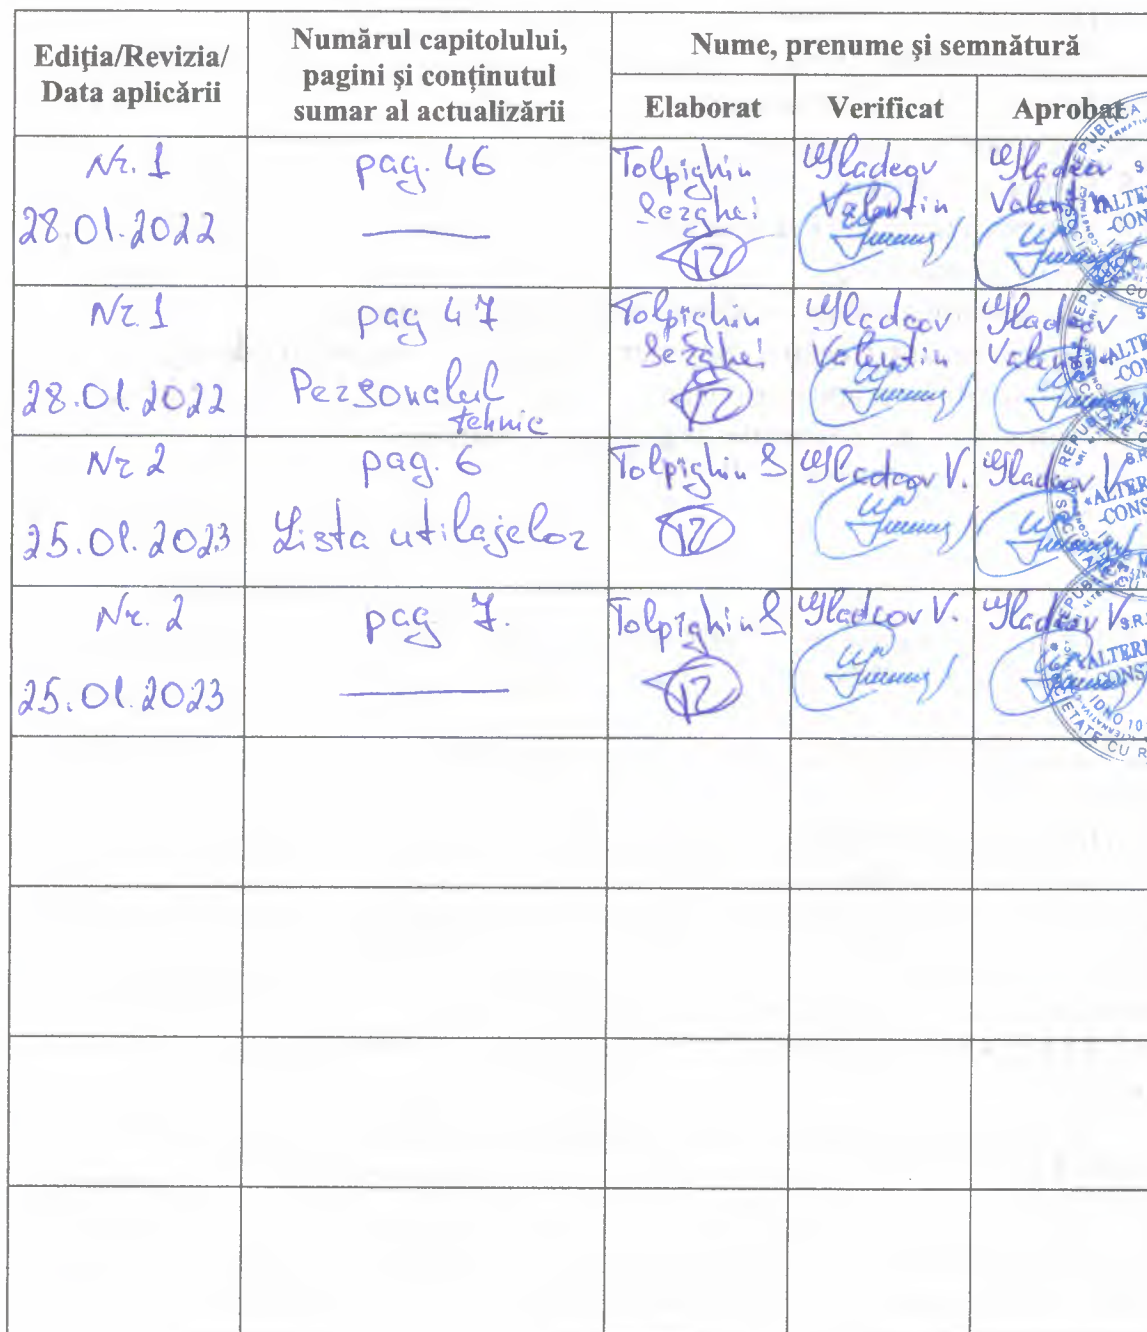 Ediția/Revizia/
Data aplicării
Numărul capitolului,
pagini și conținutul
sumar al actualizării
Nume, prenume și semnătură
Elaborat
Verificat
Aprobat
Nr. 1
28.01.2022
pag. 46
Tolpighin
Serghei
Gladcov
Valentin
Gladcov
Valentin
Nr. 1
28.01.2022
pag 47
Personalul
tehnic
Tolpighin
Serghei
Gladcov
Valentin
Gladcov
Valentin
Nr 2
25.01.2023
pag. 6
Lista utilajelor
Tolpighin S
Gladcov V.
Gladcov V.
Nr. 2
25.01.2023
pag 7.
Tolpighin S
Gladcov V.
Gladcov V.